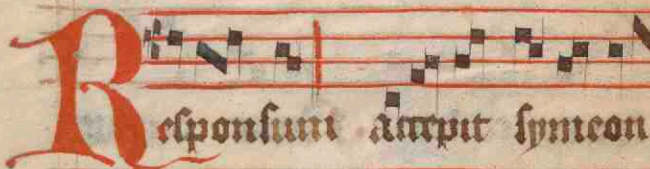 Responsum accepit symeon